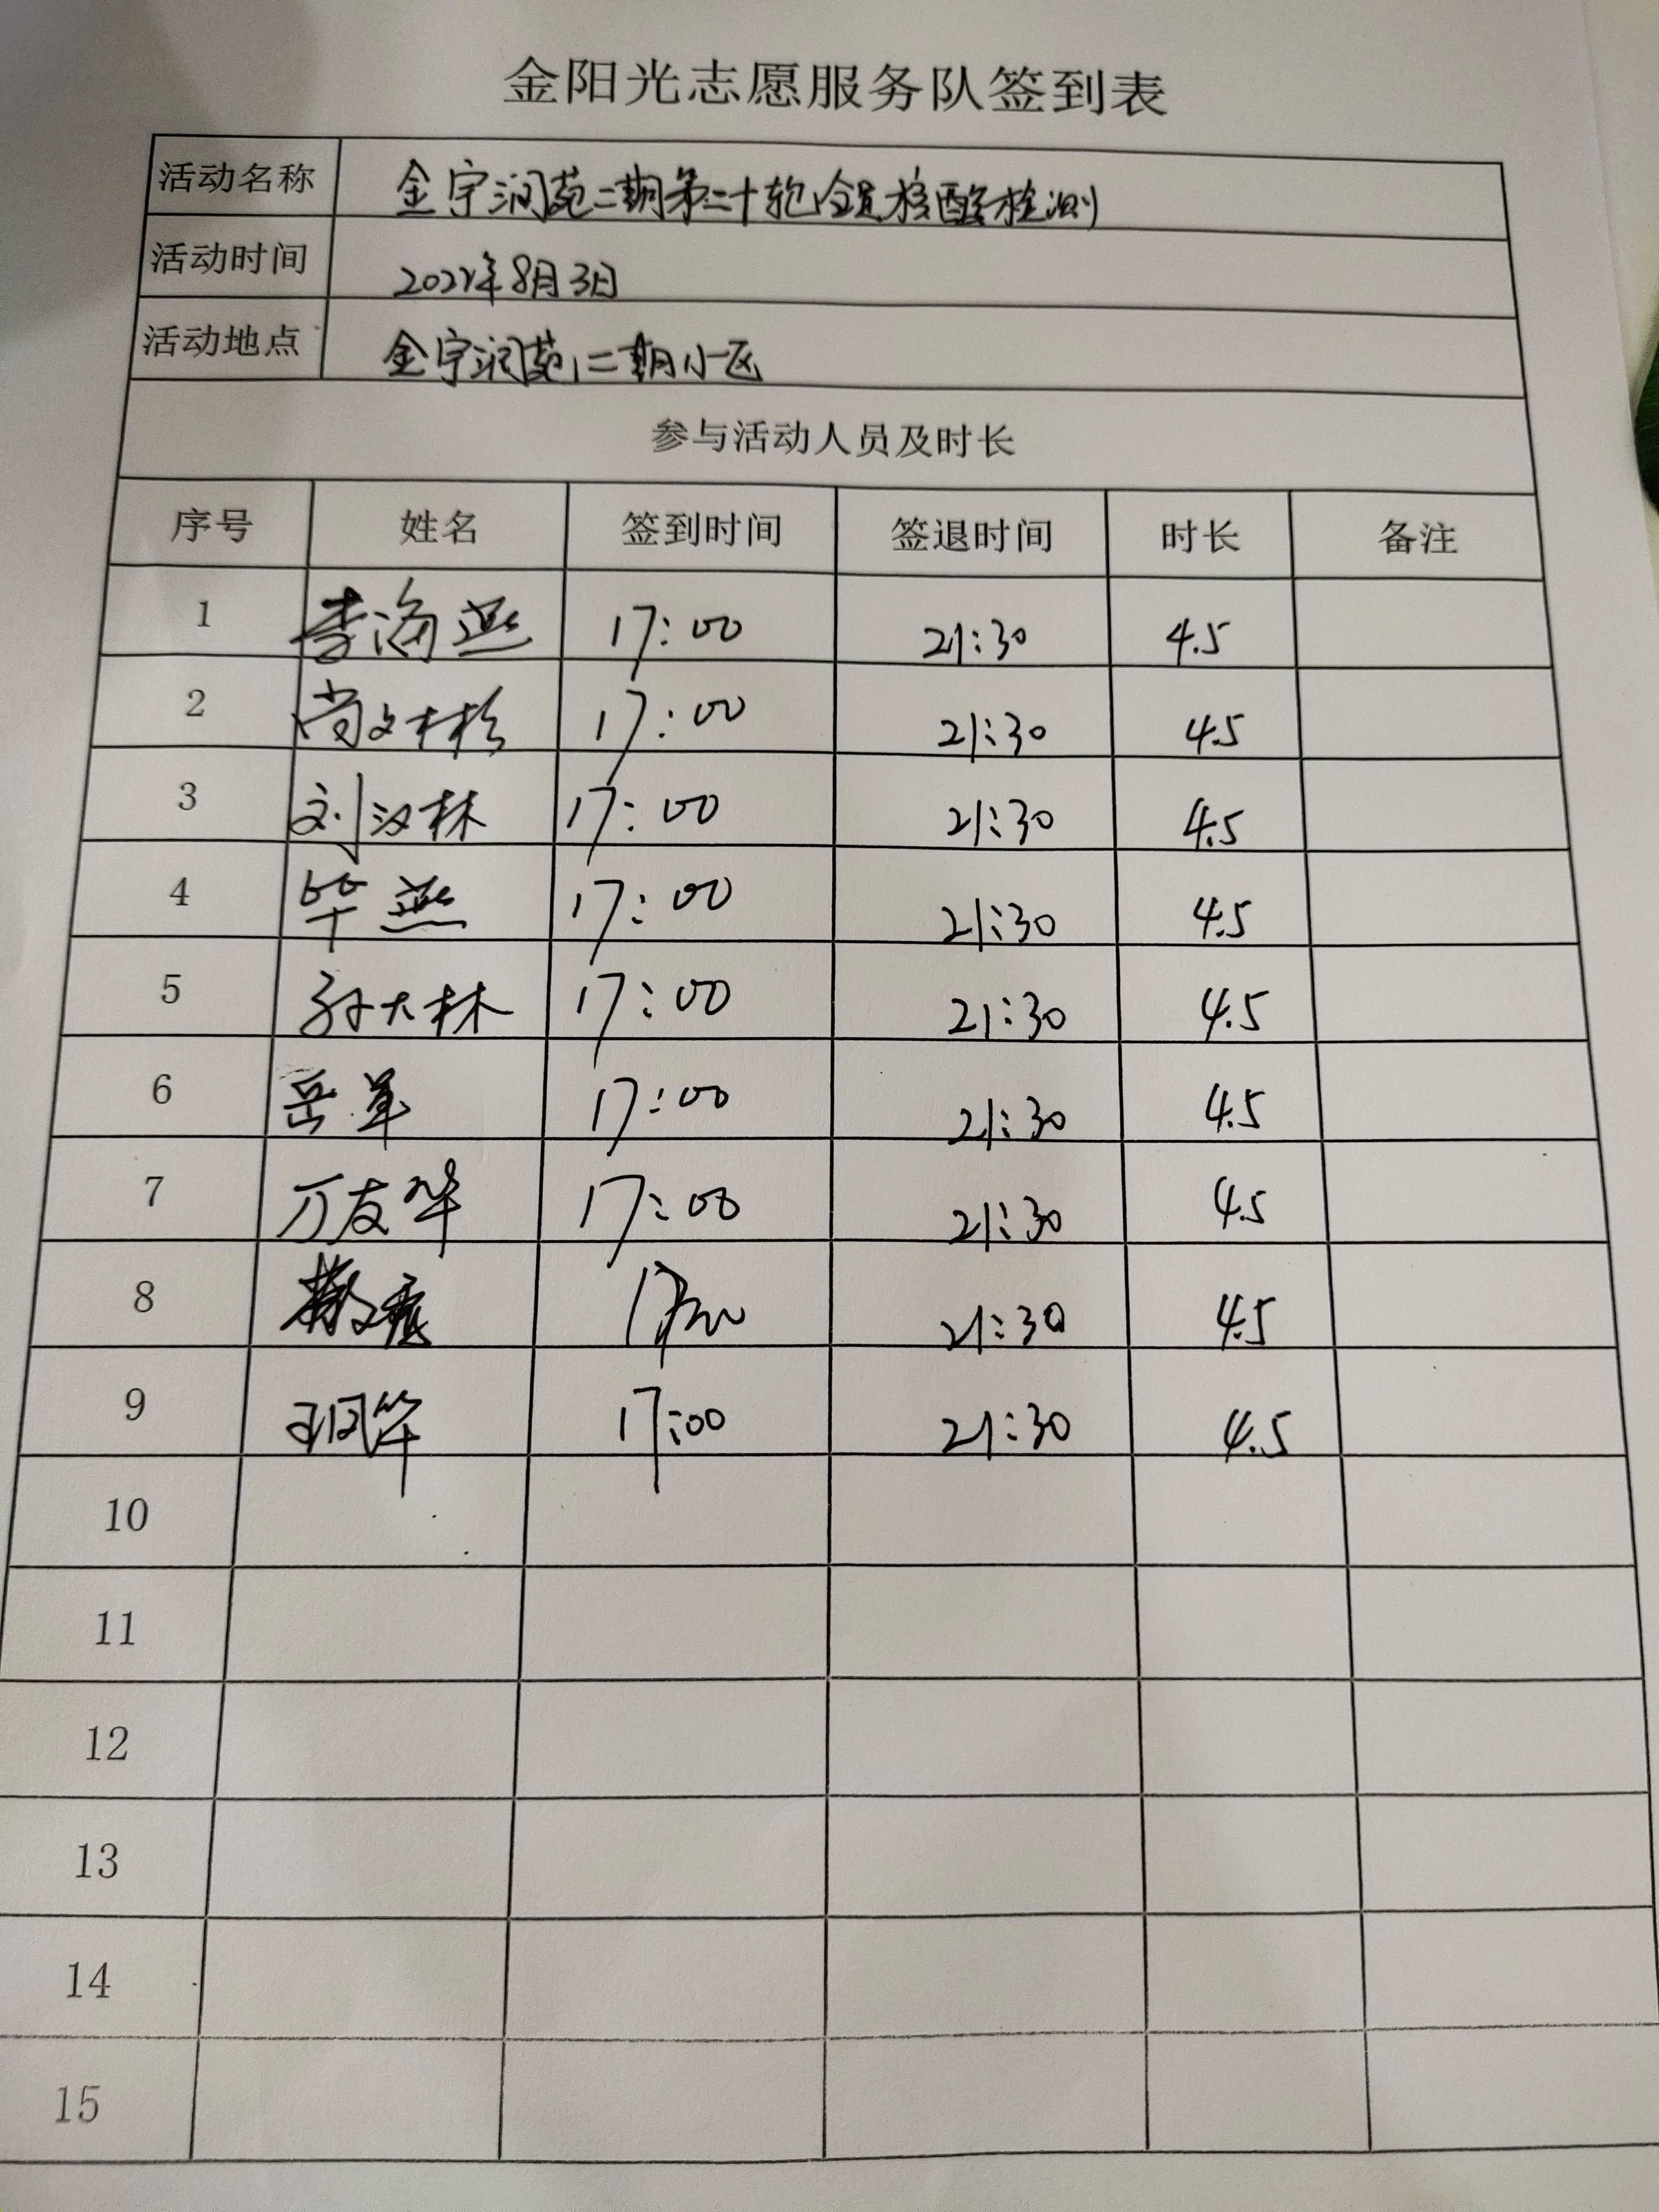 金阳光志愿服务队签到表
活动名称 金宇润苑二期第二十轮全员核酸检测
活动时间 2022年8月3日
活动地点 金宇润苑二期小区
参与活动人员及时长
序号 姓名 签到时间 签退时间 时长 备注
1 李海燕 17:00 21:30 4.5
2 尚文彬 17:00 21:30 4.5
3 刘汉林 17:00 21:30 4.5
4 毕燕 17:00 21:30 4.5
5 孙大林 17:00 21:30 4.5
6 岳军 17:00 21:30 4.5
7 万友华 17:00 21:30 4.5
8 21:30 4.5
9 王凤华 17:00 21:30 4.5
10
11
12
13
14
15